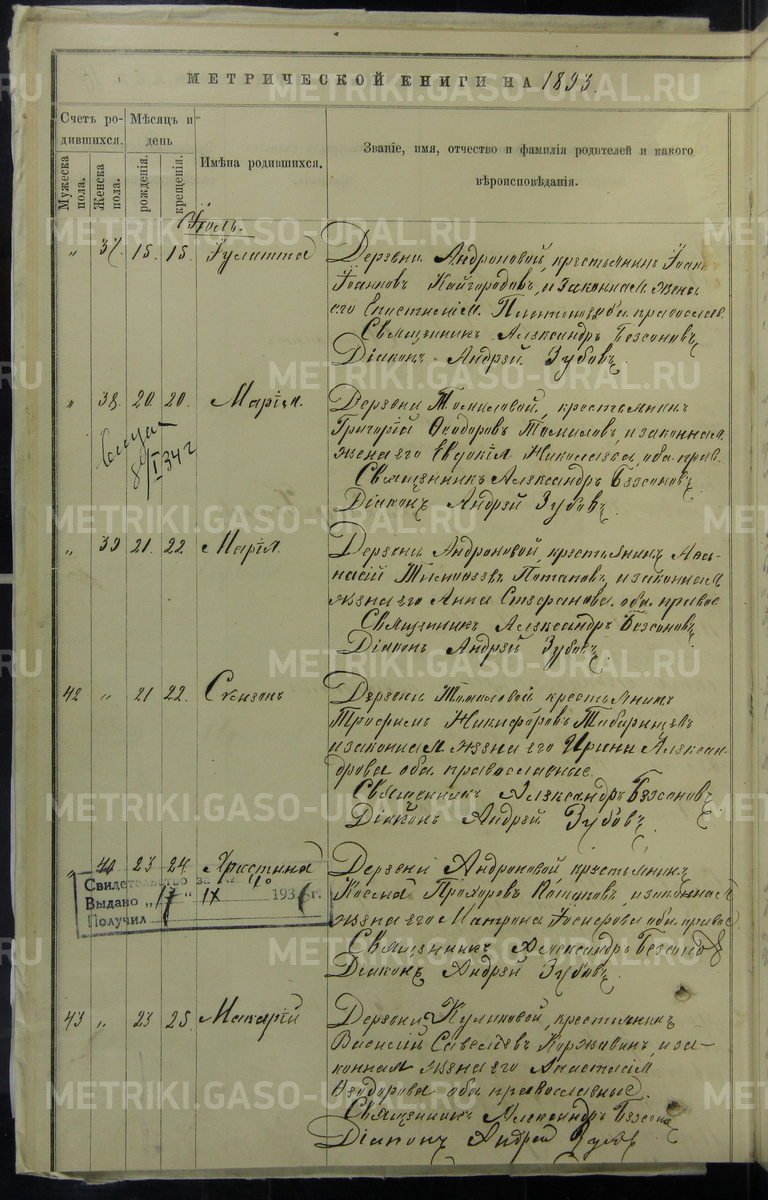 МЕТРИЧЕСКОЙ КНИГИ НА 1893.
Счетъ родившихся.
Мѣсяцъ и день
Имѣна родившихся.
Званіе, имя, отчество и фамилія родителей и какого вѣроисповѣданія.
Мужеска пола.
Женска пола.
рожденія.
крещенія.
Іюль.
„ 37. 15. 15. Іулитта
Деревни Андроновой, крестьянинъ Іоаннъ
Іоанновъ Кайгородовъ, и законная жена
его Епистимія оба православ.
Священникъ Александръ Безсоновъ
Діаконъ Андрей Зубовъ
„ 38. 20. 20. Марія.
Деревни Томиловой, крестьянинъ
Григорій Ѳеодоровъ Томиловъ, и законная
жена его Евдокія Николаева, оба прав.
Священникъ Александръ Безсоновъ
Діаконъ Андрей Зубовъ
8/I 34 г
„ 39 21. 22 Марія.
Деревни Андроновой, крестьянинъ Аѳа-
насій Тимоѳеевъ Потаповъ, и законная
жена его Анна Стефанова. оба. право
Священникъ Александръ Безсоновъ
Діаконъ Андрей Зубовъ
42 „ 21 22. Сѵмеонъ
Деревни Томиловой крестьянинъ
Трофимъ Никифоровъ Табаринцевъ
и законная жена его Ирина Алексан-
дрова оба православные.
Священникъ Александръ Безсоновъ
Діаконъ Андрей Зубовъ
„ 40 23 24. Христина
Деревни Андроновой крестьянинъ
Косма Прохоровъ Потаповъ, и законная
жена его Матрона оба. право
Священникъ Александръ Безсоновъ
Діаконъ Андрей Зубовъ
Свидетельство за № 40
Выдано „17“ IX 1936 г.
Получил
43 „ 23 25. Макарій
Деревни Куликовой, крестьянинъ
Василій Савельевъ Коржавинъ, и за-
конная жена его Анастасія
Ѳеодорова оба православные.
Священникъ Александръ Безсоно
Діаконъ Андрей Зубовъ
METRIKI.GASO-URAL.RU